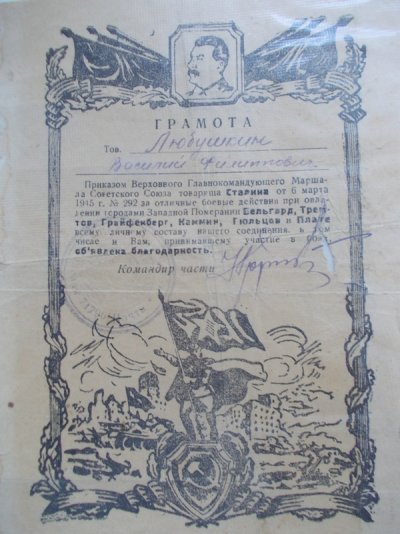 ГРАМОТА
Тов. Любушкин
Василий Филиппович
Приказом Верховного Главнокомандующего Марша-
ла Советского Союза товарища Сталина от 6 марта
1945 г. № 292 за отличные боевые действия при овла-
дении городами Западной Померании Бельгард, Треп-
тов, Грайфенберг, Каммин, Гюльцов и Плате
всему личному составу нашего соединения, в том
числе и Вам, принимавшему участие в боях,
об'явлена благодарность.
Командир части